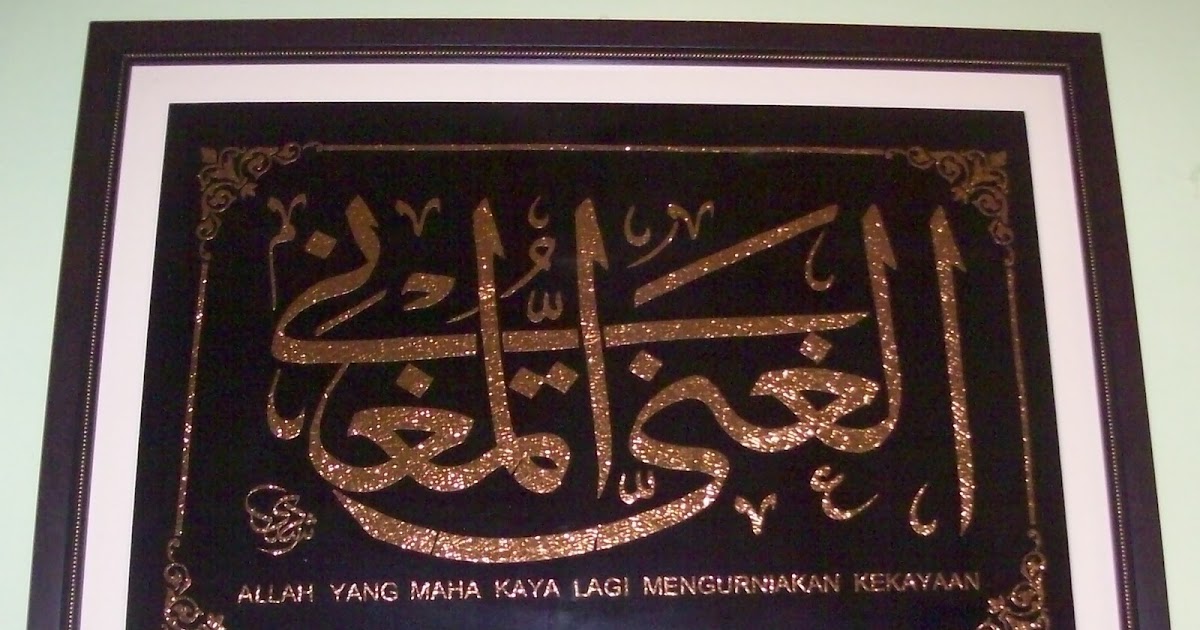 الغني المغني
ALLAH YANG MAHA KAYA LAGI MENGURNIAKAN KEKAYAAN